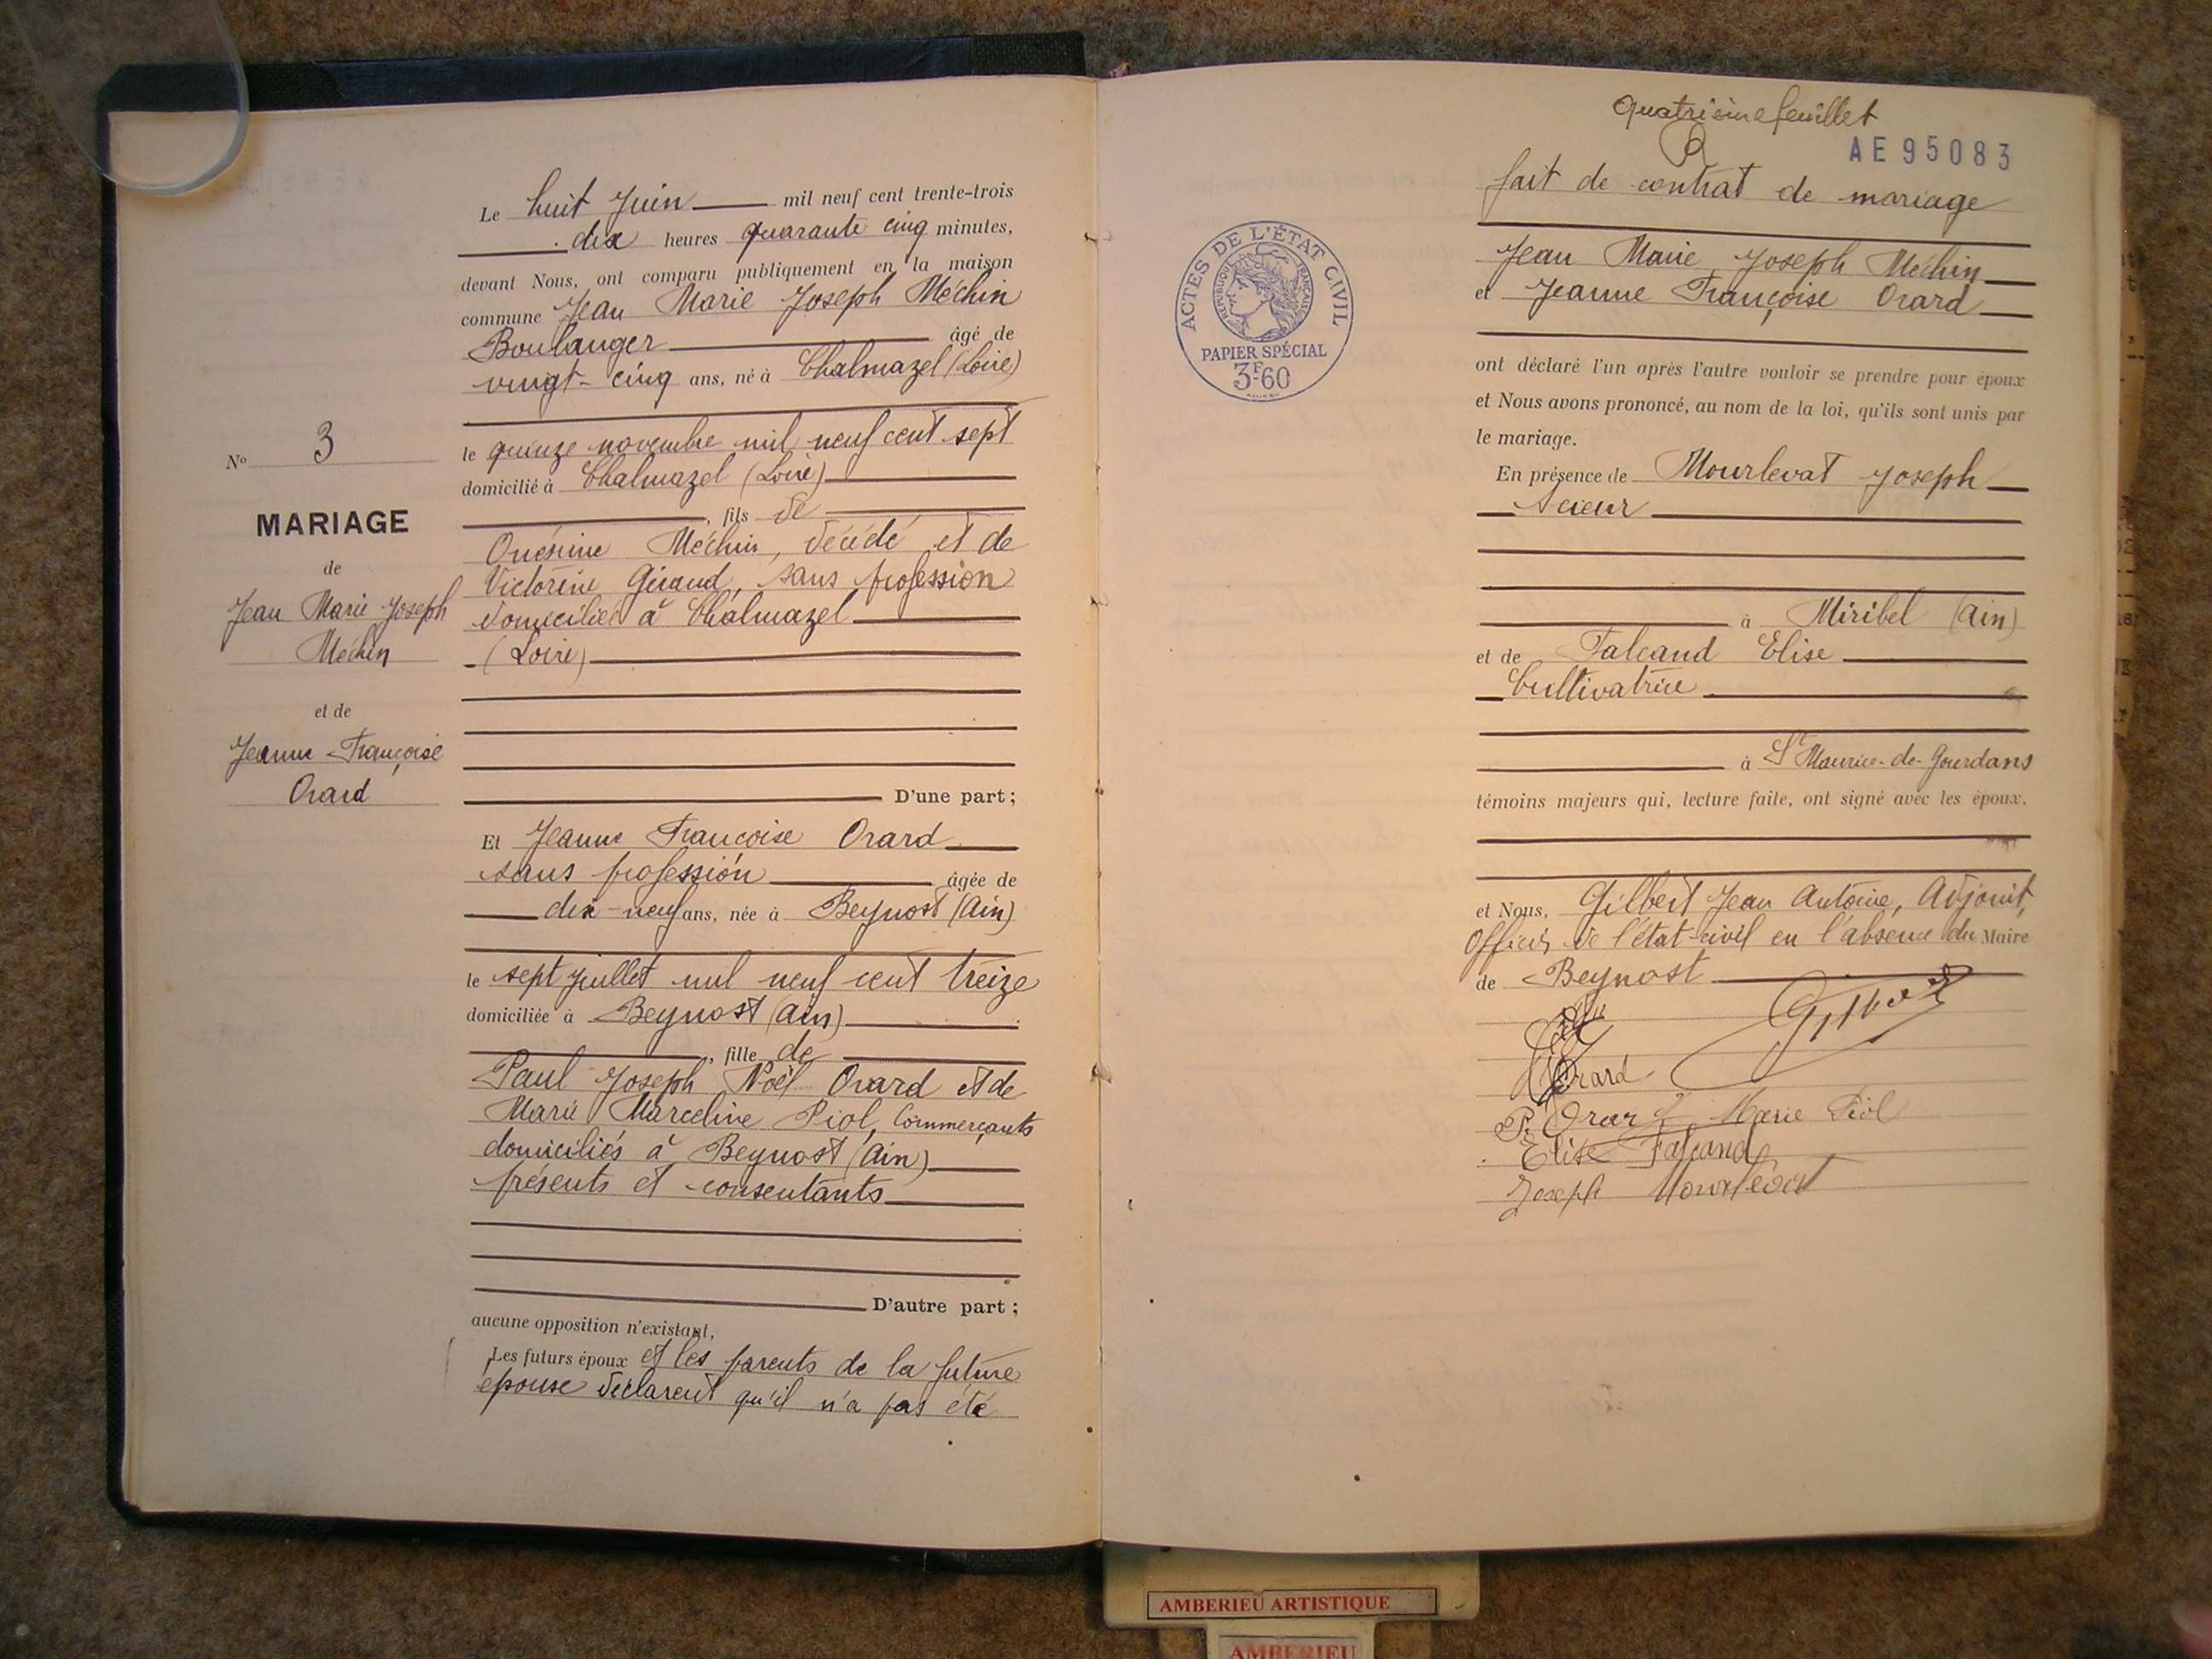 Le huit Juin mil neuf cent trente-trois
dix heures quarante cinq minutes,
devant Nous, ont comparu publiquement en la maison
commune Jean Marie Joseph Méchin
Boulanger âgé de
vingt-cinq ans, né à Chalmazel (Loire)
le quinze novembre mil neuf cent sept
domicilié à Chalmazel (Loire)
, fils de
Onésime Méchin, décédé et de
Victorine Giraud, sans profession
domiciliée à Chalmazel
(Loire)
D'une part ;
Et Jeanne Françoise Orard
sans profession âgée de
dix-neuf ans, née à Beynost (Ain)
le sept juillet mil neuf cent treize
domiciliée à Beynost (Ain)
, fille de
Paul Joseph Noël Orard et de
Marie Marceline Piol, Commerçants
domiciliés à Beynost (Ain)
présents et consentants
D'autre part ;
aucune opposition n'existant,
Les futurs époux et les parents de la future
épouse déclarent qu'il n'a pas été
No 3
MARIAGE
de
Jean Marie Joseph
Méchin
et de
Jeanne Françoise
Orard
quatrième feuillet
AE95083
ACTES DE L'ÉTAT CIVIL
RÉPUBLIQUE FRANÇAISE
PAPIER SPÉCIAL
3F60
fait de contrat de mariage
Jean Marie Joseph Méchin
et Jeanne Françoise Orard
ont déclaré l'un après l'autre vouloir se prendre pour époux
et Nous avons prononcé, au nom de la loi, qu'ils sont unis par
le mariage.
En présence de Mourlevat Joseph
Scieur
à Miribel (Ain)
et de Falcand Elise
Cultivatrice
à St Maurice-de-Gourdans
témoins majeurs qui, lecture faite, ont signé avec les époux.
et Nous, Gilbert Jean Antoine, Adjoint,
Officier de l'état-civil en l'absence du Maire
de Beynost
Gilbert
Orard
P. Orard Marie Piol
Elise Falcand
Joseph Mourlevat
AMBERIEU ARTISTIQUE
AMBERIEU